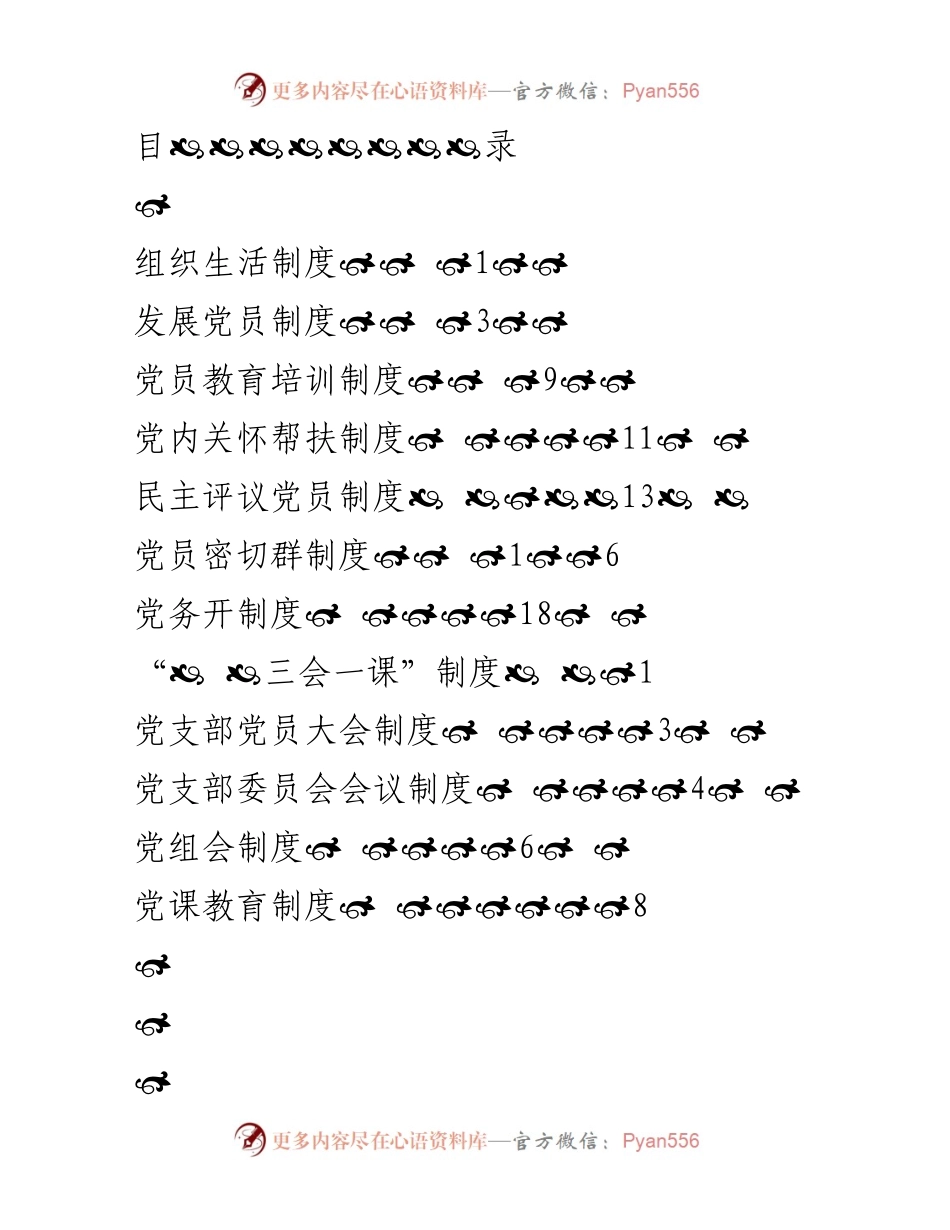 更多内容尽在心语资料库—官方微信：Pyan556
目录
组织生活制度 1
发展党员制度 3
党员教育培训制度 9
党内关怀帮扶制度 11
民主评议党员制度 13
党员密切群制度 1 6
党务开制度 18
“ 三会一课”制度 1
党支部党员大会制度 3
党支部委员会会议制度 4
党组会制度 6
党课教育制度 8
更多内容尽在心语资料库—官方微信：Pyan556